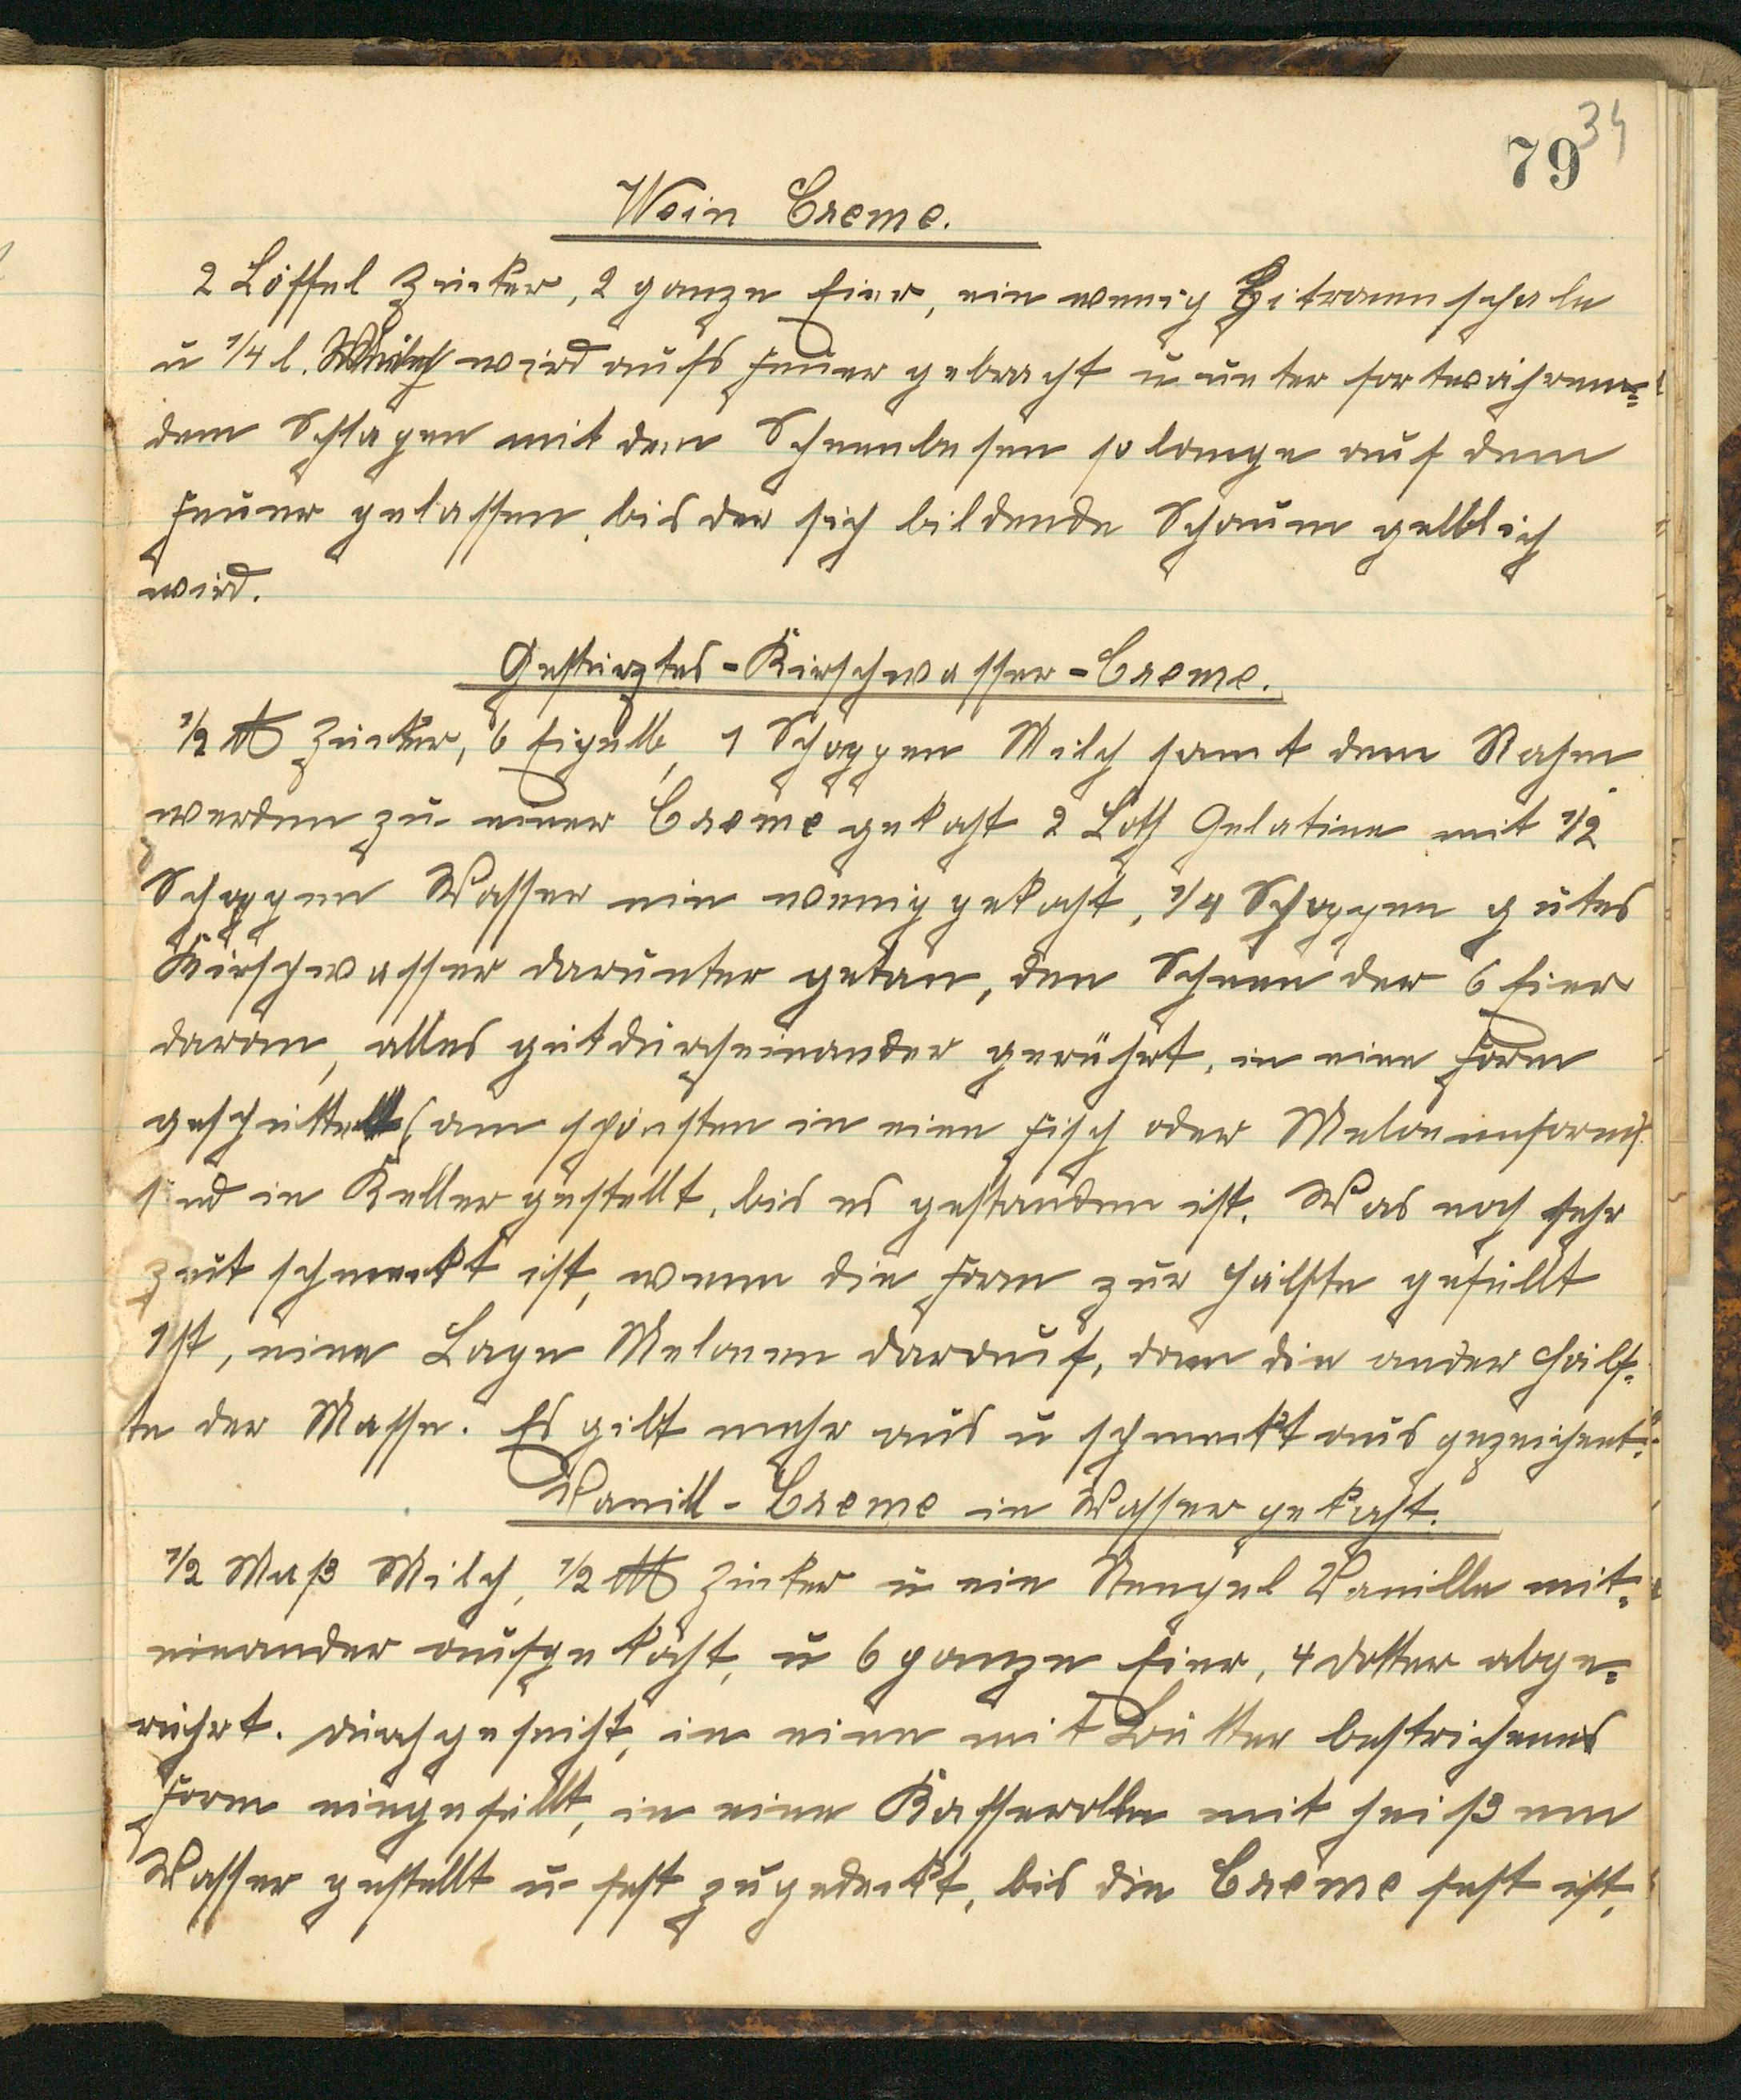 79 34
Wein Creme.
2 Löffel Zucker, 2 ganze Eier, ein wenig Zitronenschale
u 1/4 l. wird aufs Feuer gebracht u unter fortwähren=
dem Schlagen mit dem Schneebesen so lange auf dem
Feuer gelassen, bis der sich bildende Schaum gelblich
wird.
Gestürztes-Kirschwasser-Creme.
1/2 ℔ Zucker, 6 Eigelb, 1 Schoppen Milch samt dem Rahm
werden zu einer Creme gekocht 2 Loth Gelatine mit 1/2
Schoppen Wasser ein wenig gekocht, 1/4 Schoppen gutes
Kirschwasser darunter getan, den Schnee der 6 Eier
daran, alles gut durcheinander gerührt, in eine Form
geschüttelt (am schönsten in eine Fisch oder Melonenform)
und in Keller gestellt, bis es gestanden ist. Was noch sehr
gut schmeckt ist, wenn die Form zur Hälfte gefüllt
ist, eine Lage Melonen darauf, dann die ander Hälf=
te der Masse. Es gibt mehr aus u schmeckt ausgezeichnet.
Vanill-Creme in Wasser gekocht.
1/2 Maß Milch, 1/2 ℔ Zucker u ein Stengel Vanille mit=
einander aufgekocht, u 6 ganze Eier, 4 Dotter abge=
rührt. durchgeseiht, in eine mit Butter bestrichenes
Form eingefüllt, in eine Kasserolle mit heißem
Wasser gestellt u fest zugedeckt, bis die Creme fest ist,